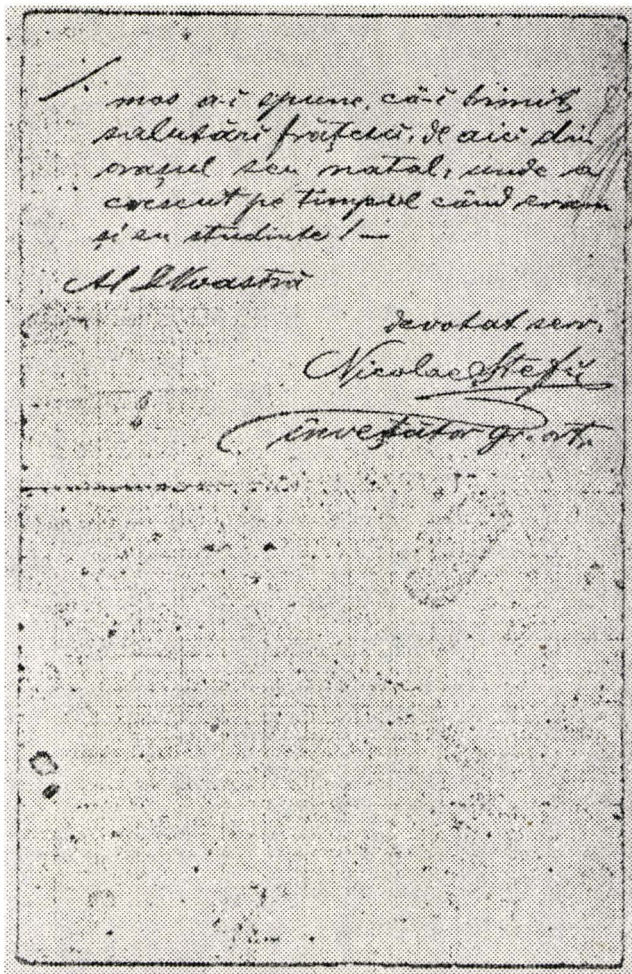 mos a-i spune, că-i trimit
salutări frățesci, de aici din
orașul seu natal, unde a
crescut pe timpul când eram
și eu studinte! —
Al D Voastră
devotat serv.
Nicolae Ștefu
învețător gr. ort.